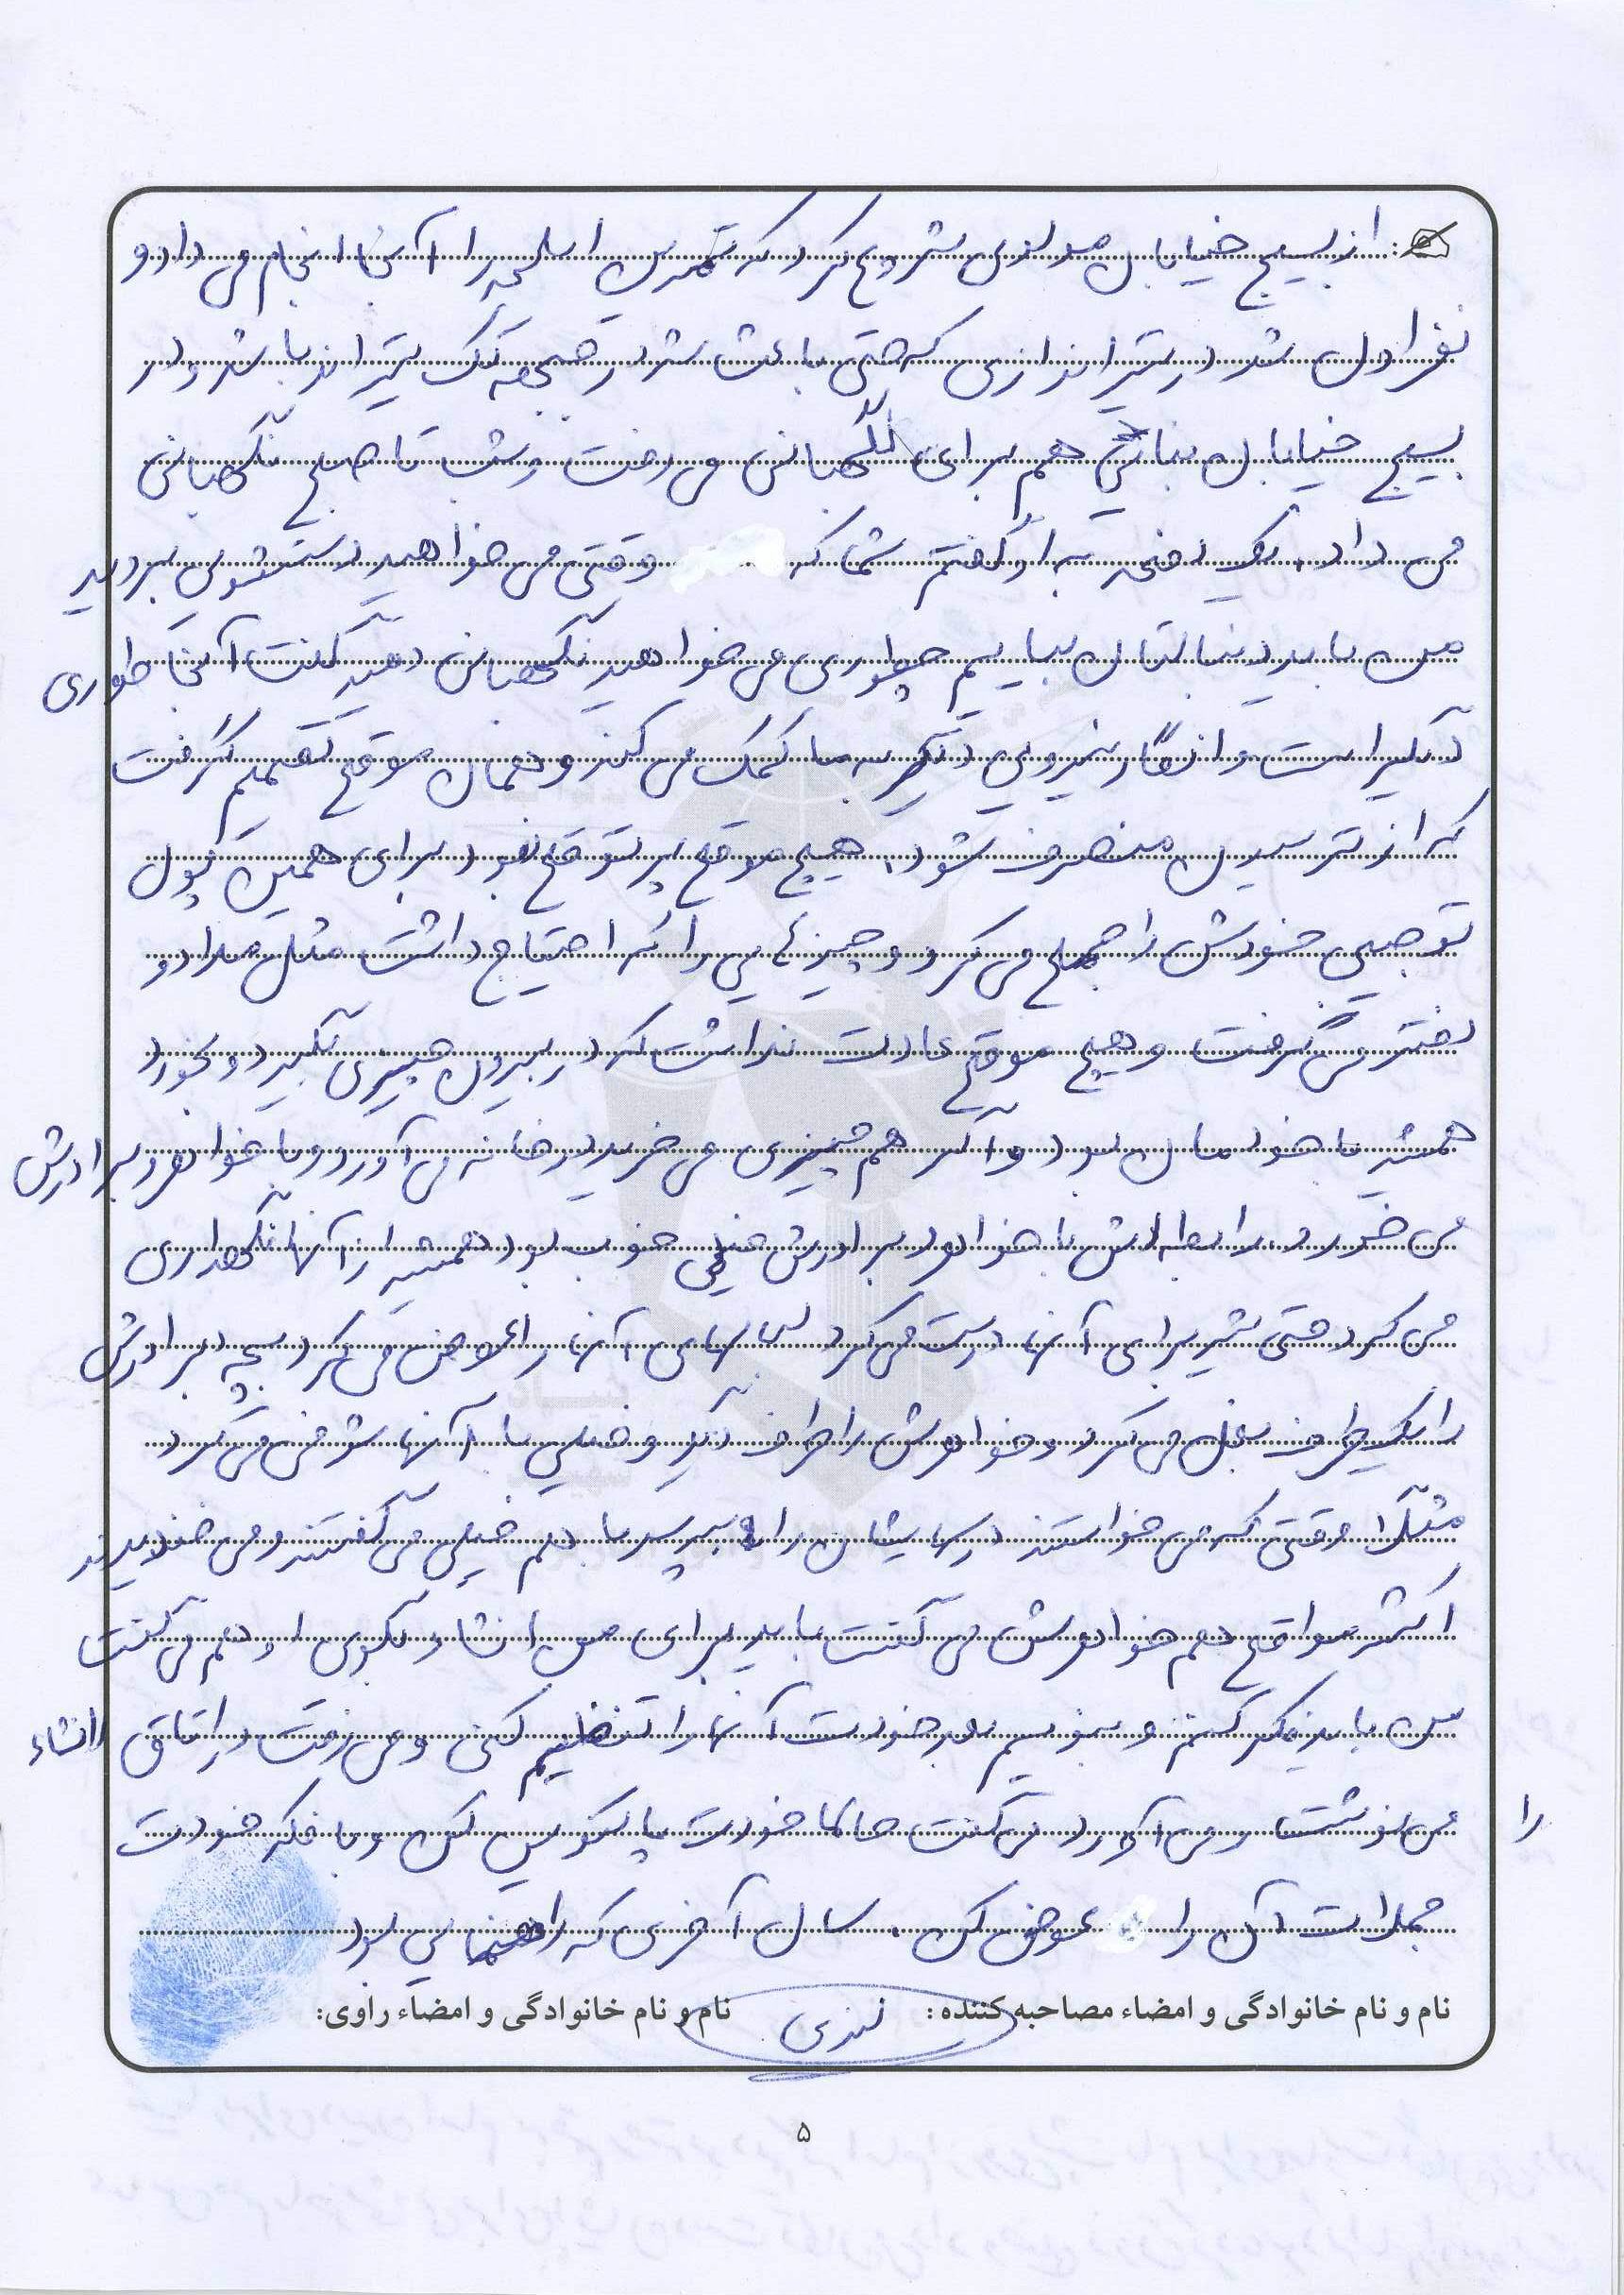 از بسیج خیابان مولوی شروع کرد که تمرین اسلحه را آنجا انجام می داد و
نفر اول شد در تیراندازی که حتی باعث شد در جبهه تک تیرانداز باشد و در
بسیج خیابان هم برای نگهبانی می رفت و شب تا صبح نگهبانی
می داد. یک دفعه به او گفتم شما که وقتی می خواهید دستشویی بروید
من باید دنبالتان بیایم چطوری می خواهید نگهبانی دهید گفت آنجا طوری
دیگر است و انگار نیرویی دیگر به ما کمک می کند و همان موقع تصمیم گرفت
که از ترسیدن منصرف شود. هیچ موقع پر توقع نبود برای همین پول
توجیبی خودش را جمع می کرد و چیزهایی را که احتیاج داشت مثل مداد و
دفتر می گرفت و هیچ موقع عادت نداشت که در بیرون چیزی بگیرد و بخورد
همیشه با خودمان بود و اگر هم چیزی می خرید در خانه می آورد و با خواهر و برادرش
می خورد. رابطه اش با خواهر و برادرش خیلی خوب بود همیشه از آنها نگهداری
می کرد حتی شیر برای آنها درست می کرد لباسهای آنها را عوض می کرد بچه برادرش
را یکطرف بغل می کرد و خواهرش را طرف دیگر و خیلی با آنها شوخی می کرد
مثلاً وقتی که می خواستند درسهایشان را بپرسد با هم خیلی می گفتند و می خندیدند
اکثر مواقع هم خواهرش می گفت باید برای من انشاء بگوی او هم می گفت
من باید فکر کنم و بنویسم بعد خودت آنها را تنظیم کنی و می رفت در اتاق انشاء
را می نوشت و می آورد می گفت حالا خودت پاکنویس کن و با فکر خودت
جملات آن را عوض کن. سال آخری که راهنمایی بود
نام و نام خانوادگی و امضاء مصاحبه کننده: نام و نام خانوادگی و امضاء راوی:
۵